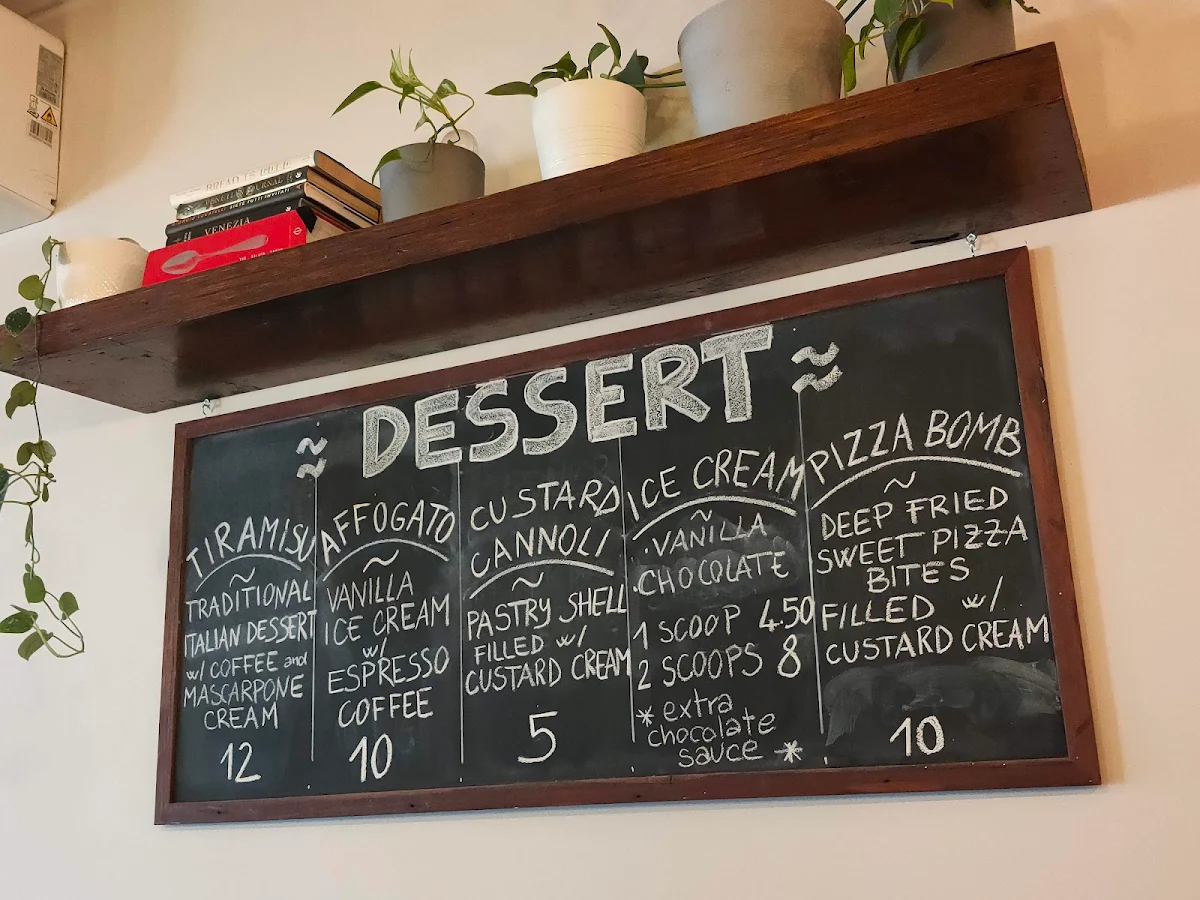 BREAD IS GOLD
VENETIAN JOURNAL
VENEZIA
DESSERT
TIRAMISU
TRADITIONAL
ITALIAN DESSERT
w/ COFFEE and
MASCARPONE
CREAM
12
AFFOGATO
VANILLA
ICE CREAM
w/
ESPRESSO
COFFEE
10
CUSTARD
CANNOLI
PASTRY SHELL
FILLED w/
CUSTARD CREAM
5
ICE CREAM
·VANILLA
·CHOCOLATE
1 SCOOP 4.50
2 SCOOPS 8
* extra
chocolate
sauce *
PIZZA BOMB
DEEP FRIED
SWEET PIZZA
BITES
FILLED w/
CUSTARD CREAM
10